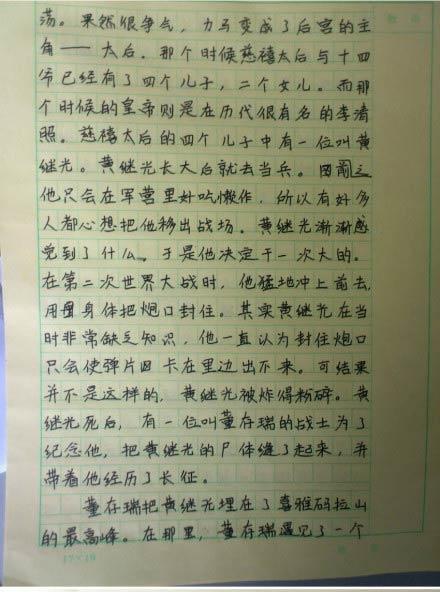 荡。果然很争气，力马变成了后宫的主
角——太后。那个时候慈禧太后与十四
爷已经有了四个儿子，二个女儿。而那
个时候的皇帝则是在历代很有名的李清
照。慈禧太后的四个儿子中有一位叫黄
继光。黄继光长大后就去当兵。因
他只会在军营里好吃懒作，所以有好多
人都心想把他移出战场。黄继光渐渐感
觉到了什么，于是他决定干一次大的。
在第二次世界大战时，他猛地冲上前去，
用身体把炮口封住。其实黄继光在当
时非常缺乏知识，他一直认为封住炮口
只会使弹片卡在里边出不来。可结果
并不是这样的，黄继光被炸得粉碎。黄
继光死后，有一位叫董存瑞的战士为了
纪念他，把黄继光的尸体缝了起来，并
带着他经历了长征。
董存瑞把黄继光埋在了喜雅码拉山
的最高峰。在那里，董存瑞遇见了一个